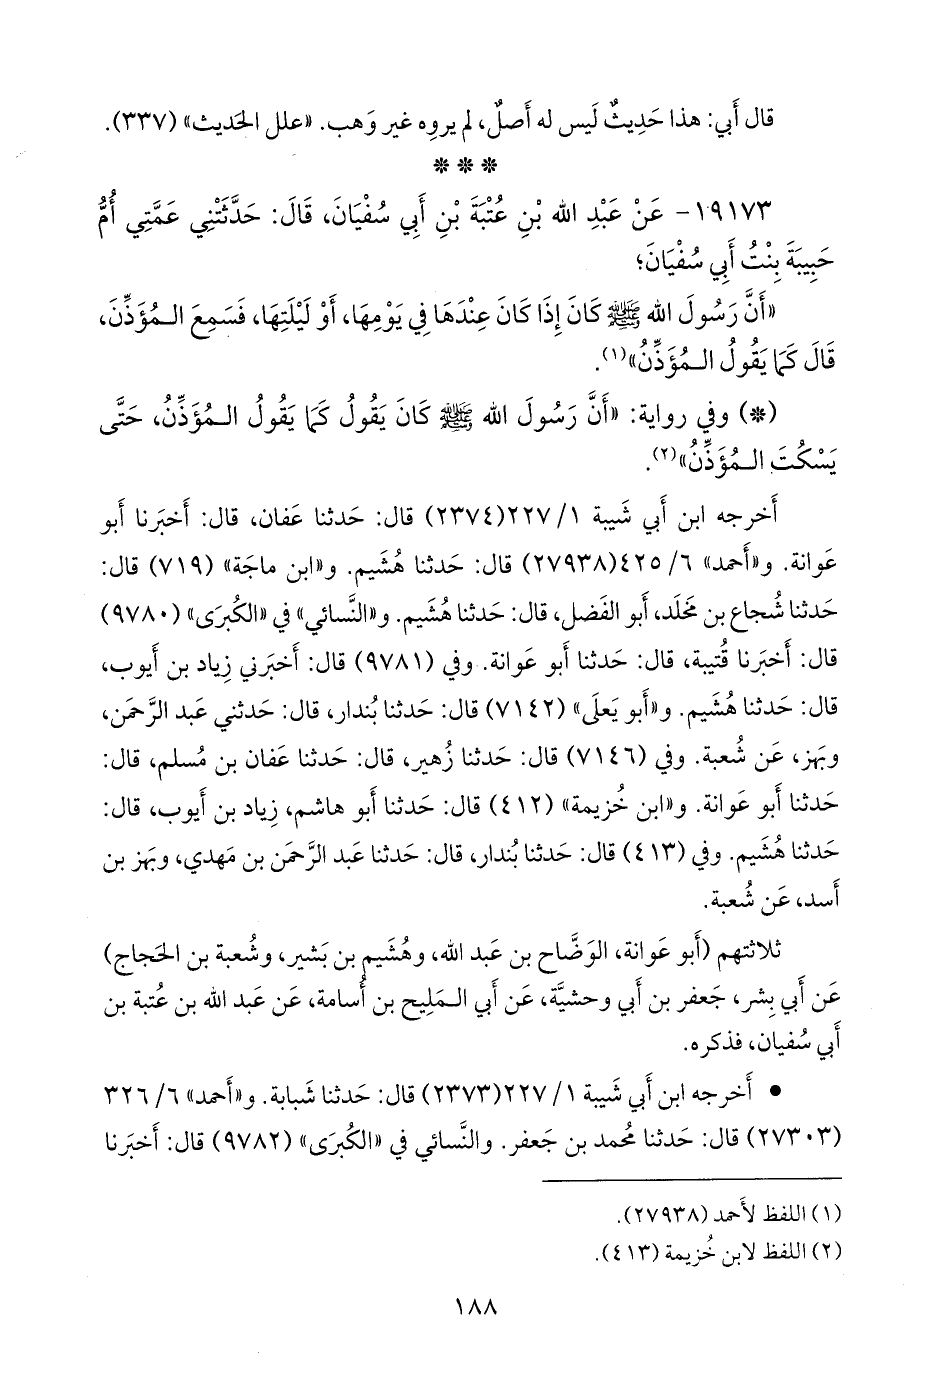 قال أَبي: هذا حَدِيثٌ لَيس له أَصلٌ، لم يروِه غير وَهب. «علل الحَديث» (٣٣٧).
* * *
١٩١٧٣- عَنْ عَبْدِ الله بْنِ عُتْبَةَ بْنِ أَبِي سُفْيَانَ، قَالَ: حَدَّثَتْنِي عَمَّتِي أُمُّ
حَبِيبَةَ بِنْتُ أَبِي سُفْيَانَ؛
«أَنَّ رَسُولَ الله ﷺ كَانَ إِذَا كَانَ عِنْدَهَا فِي يَوْمِهَا، أَوْ لَيْلَتِهَا، فَسَمِعَ الْمُؤَذِّنَ،
قَالَ كَمَا يَقُولُ الْمُؤَذِّنُ»(١).
(*) وفي رواية: «أَنَّ رَسُولَ الله ﷺ كَانَ يَقُولُ كَمَا يَقُولُ الْمُؤَذِّنُ، حَتَّى
يَسْكُتَ الْمُؤَذِّنُ»(٢).
أَخرجه ابن أَبي شَيبة ١/ ٢٢٧(٢٣٧٤) قال: حَدثنا عَفان، قال: أَخبَرنا أَبو
عَوانة. و«أَحمد» ٦/ ٤٢٥(٢٧٩٣٨) قال: حَدثنا هُشَيم. و«ابن ماجَة» (٧١٩) قال:
حَدثنا شُجاع بن مَخلَد، أَبو الفَضل، قال: حَدثنا هُشَيم. و«النَّسائي» في «الكُبرَى» (٩٧٨٠)
قال: أَخبَرنا قُتيبة، قال: حَدثنا أَبو عَوانة. وفي (٩٧٨١) قال: أَخبَرني زياد بن أَيوب،
قال: حَدثنا هُشَيم. و«أَبو يَعلَى» (٧١٤٢) قال: حَدثنا بُندار، قال: حَدثني عَبد الرَّحمَن،
وبَهز، عَن شُعبة. وفي (٧١٤٦) قال: حَدثنا زُهير، قال: حَدثنا عَفان بن مُسلم، قال:
حَدثنا أَبو عَوانة. و«ابن خُزيمة» (٤١٢) قال: حَدثنا أَبو هاشم، زِياد بن أَيوب، قال:
حَدثنا هُشَيم. وفي (٤١٣) قال: حَدثنا بُندار، قال: حَدثنا عَبد الرَّحمَن بن مَهدي، وبَهز بن
أَسد، عَن شُعبة.
ثلاثتهم (أَبو عَوانة، الوَضَّاح بن عَبد الله، وهُشَيم بن بَشير، وشُعبة بن الحَجاج)
عَن أَبي بِشر، جَعفر بن أَبي وحشيَّة، عَن أَبي الـمَلِيح بن أُسامة، عَن عَبد الله بن عُتبة بن
أَبي سُفيان، فذكره.
• أَخرجه ابن أَبي شَيبة ١/ ٢٢٧(٢٣٧٣) قال: حَدثنا شَبابة. و«أَحمد» ٦/ ٣٢٦
(٢٧٣٠٣) قال: حَدثنا مُحمد بن جَعفر. والنَّسائي في «الكُبرَى» (٩٧٨٢) قال: أَخبَرنا
(١) اللفظ لأَحمد (٢٧٩٣٨).
(٢) اللفظ لابن خُزيمة (٤١٣).
١٨٨